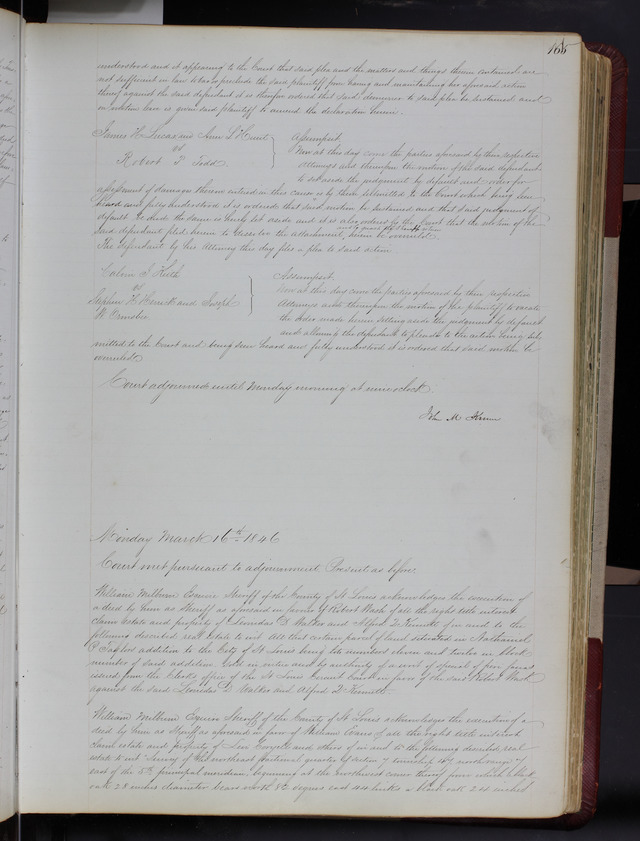 165
understood and it appearing to the Court that said plea and the matters and things therein contained are
not sufficient in law to bar or preclude the said plaintiff from having and maintaining his aforesaid action
thereof against the said defendant it is therefore ordered that said demurrer to said plea be sustained and
on motion leave is given said plaintiff to amend the declaration herein.
James H Lucas and Ann L Hunt
vs
Robert P Todd
Assumpsit.
Now at this day come the parties aforesaid by their respective
Attorneys and thereupon the motion of the said defendant
to set aside the judgment by default and
assessment of damages therein entered in this cause is by them submitted to the Court which being seen
heard and fully understood it is ordered that said motion be sustained and that said judgment by
default the same is hereby set aside and it is also ordered by the Court that the motion of the
said defendant filed herein to dissolve the attachment be overruled
The defendant by his Attorney this day files a plea to said action.
Calvin F
vs
Stephen H and Joseph
W Ormsbee
Assumpsit.
Now at this day come the parties aforesaid by their respective
Attorneys and thereupon the motion of the plaintiff to vacate
the order made herein setting aside the judgment by default
and allowing the defendants to plead to the action being sub
mitted to the Court and being seen heard and fully understood it is ordered that said motion be
overruled
Court adjourned until Monday morning at nine oclock.
John M Krum
Monday March 16th 1846
Court met pursuant to adjournment Present as before.
William Milburn Esquire Sheriff of the County of St Louis acknowledges the execution of
a deed by him as Sheriff as aforesaid in favor of Robert Wash of all the right title interest
claim estate and property of Leonidas D Walker and Alfred D in and to the
following described real estate to wit All that certain parcel of land situated in Nathaniel
P Taylors addition to the City of St Louis being lots numbers eleven and twelve in block
number of said addition. Sold in virtue and by authority of a writ of special fi
issued from the Clerks office of the St Louis Circuit Court in favor of the said Robert Wash
against the said Leonidas D Walker and Alfred D
William Milburn Esquire Sheriff of the County of St Louis acknowledges the execution of a
deed by him as Sheriff as aforesaid in favor of William of all the right title interest
claim estate and property of and others of in and to the following described real
estate to wit of the northeast fractional quarter of section 7 township 47 north range 7
east of the 5th principal meridian, beginning at the northwest corner thereof from which a black
oak 28 inches diameter bears north degrees east 44 links a black oak 24 inches